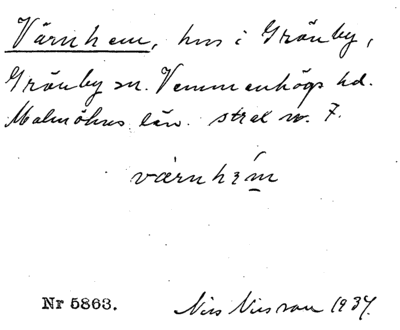 Värnhem, hus i Grönby,
Grönby sn. Vemmenhögs hd.
Malmöhus län. strax nv. 7.
værnhɛ́m
Nr 5863.
Nils Nilsson 1937.